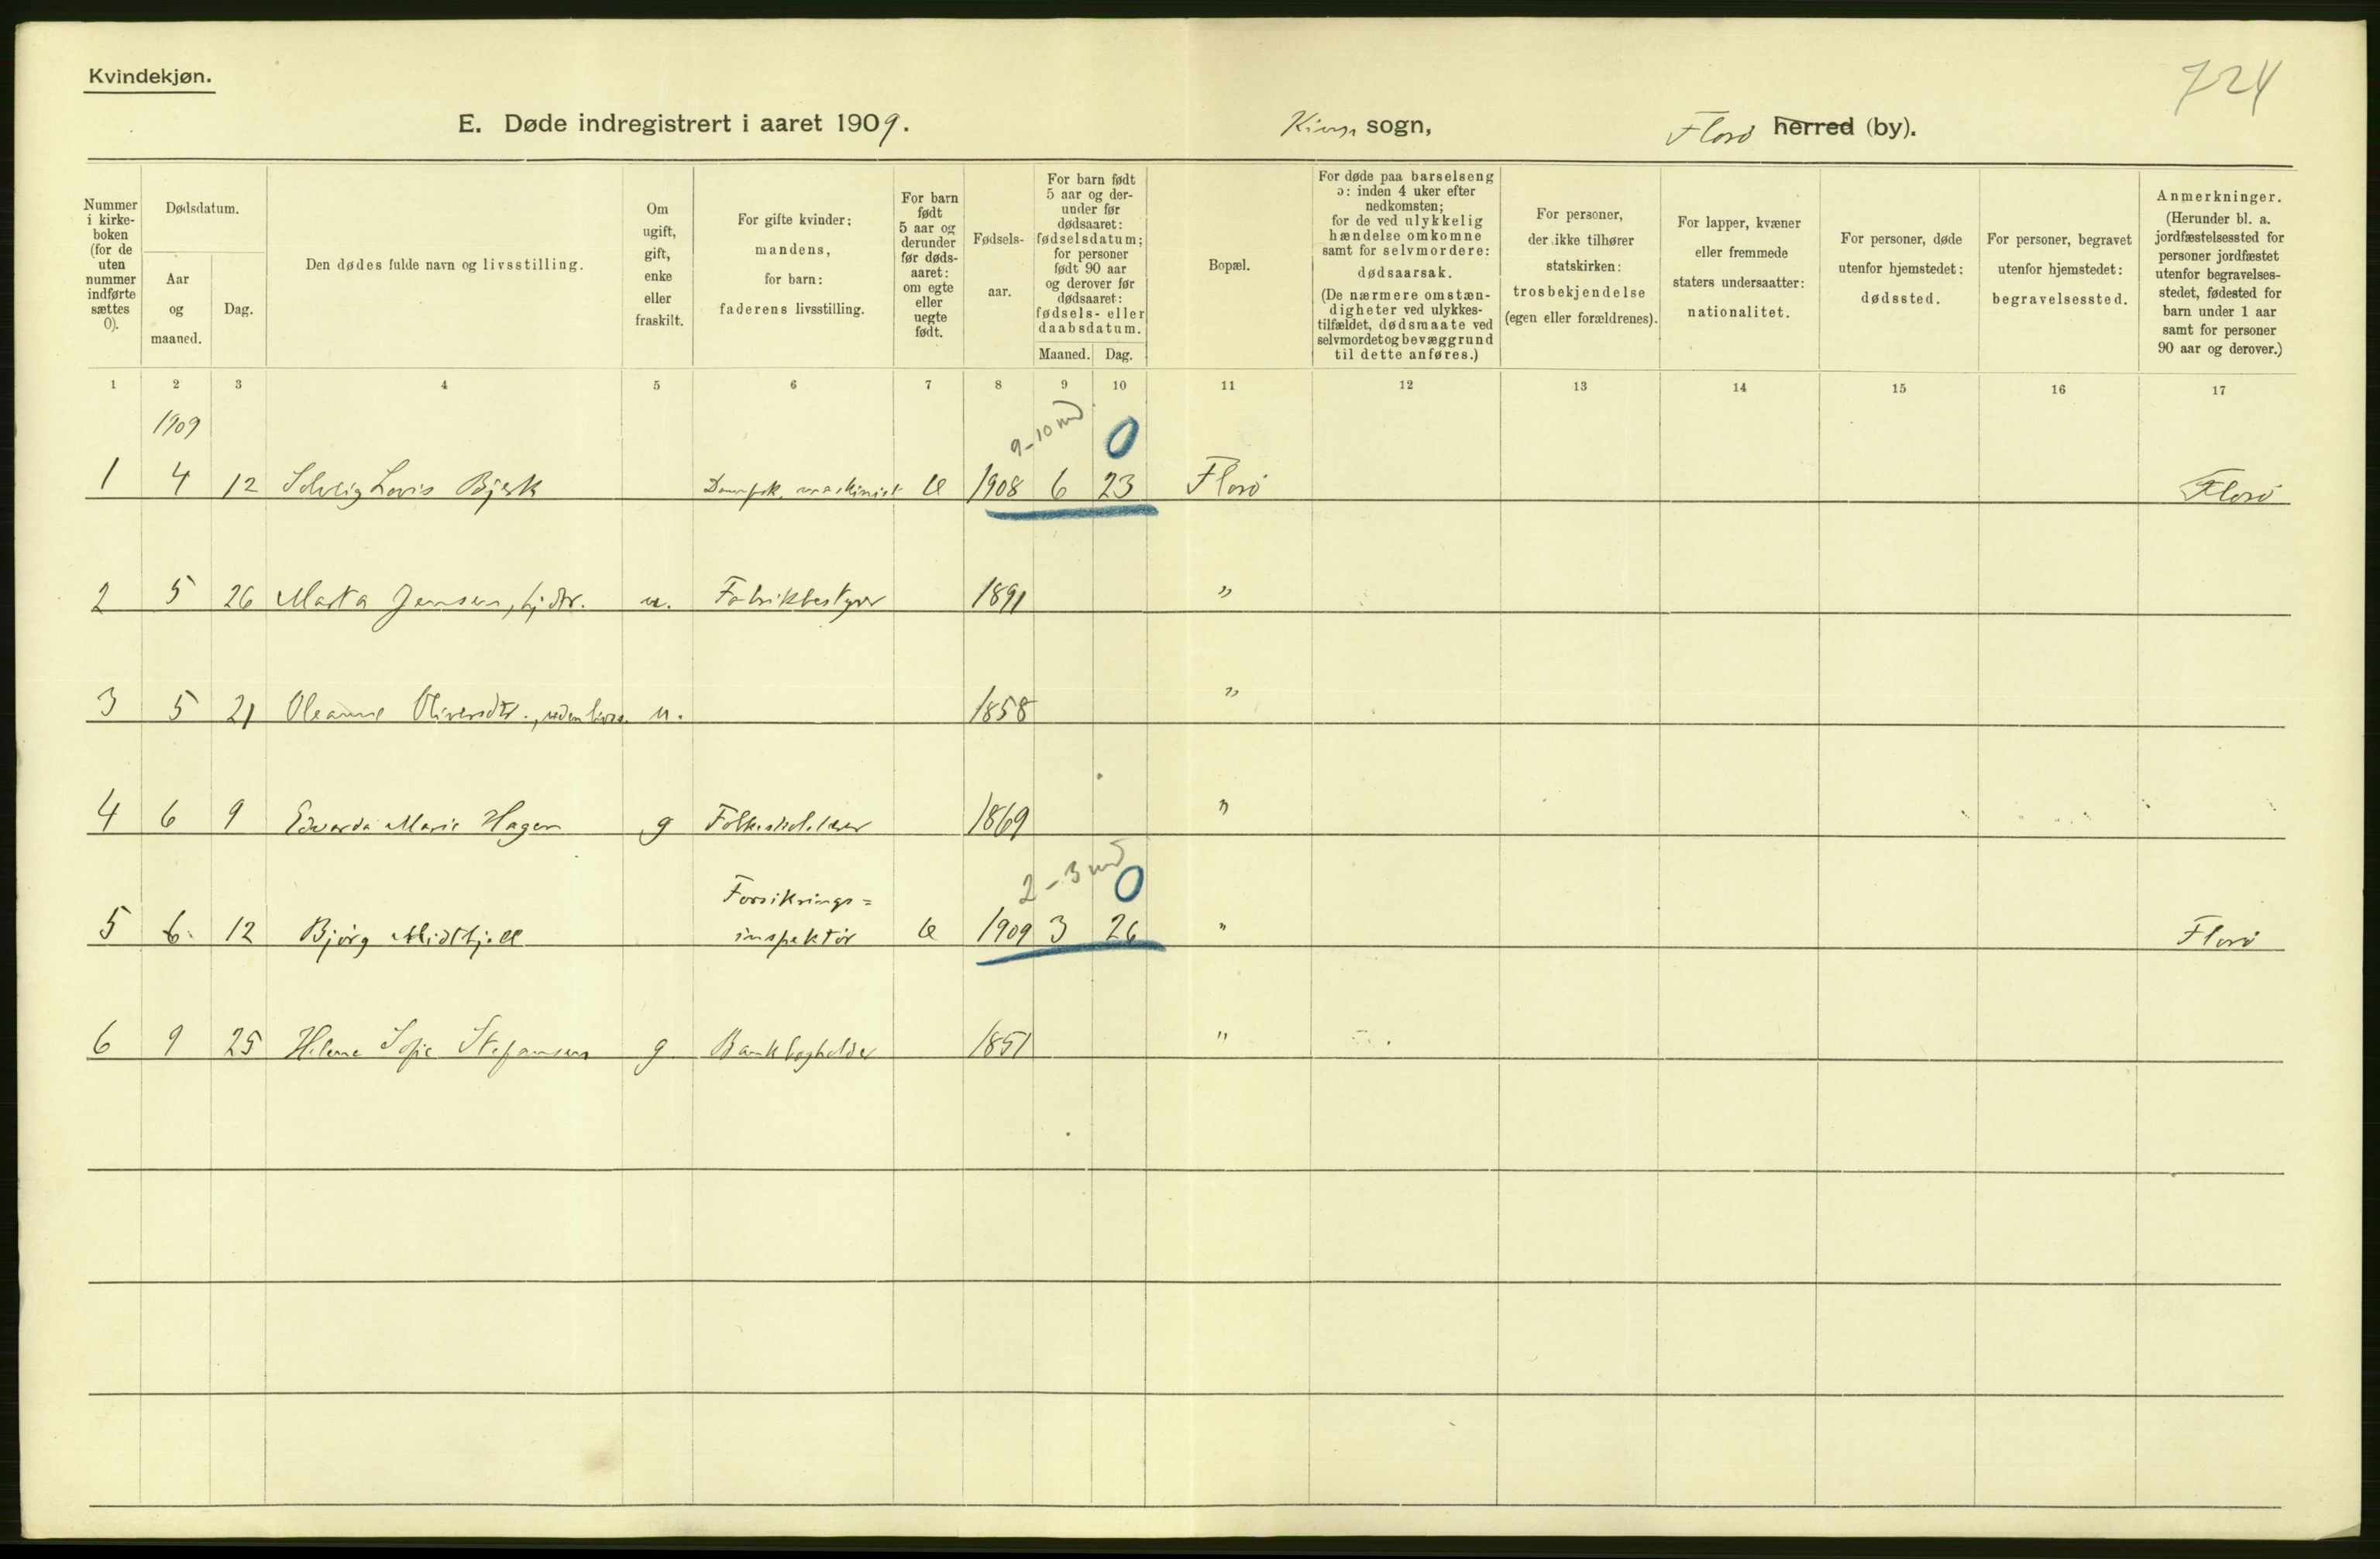 Kvindekjøn.
724
E. Døde indregistrert i aaret 1909.
Kinn sogn,
Florø herred (by).
Nummer
i kirke-
boken
(for de
uten
nummer
indførte
sættes
0).
Dødsdatum.
Aar
og
maaned.
Dag.
Den dødes fulde navn og livsstilling.
Om
ugift,
gift,
enke
eller
fraskilt.
For gifte kvinder:
mandens,
for barn:
faderens livsstilling.
For barn
født
5 aar og
derunder
før døds-
aaret:
om egte
eller
uegte
født.
Fødsels-
aar.
For barn født
5 aar og der-
under før
dødsaaret:
fødselsdatum;
for personer
født 90 aar
og derover før
dødsaaret:
fødsels- eller
daabsdatum.
Maaned. Dag.
Bopæl.
For døde paa barselseng
ɔ: inden 4 uker efter
nedkomsten;
for de ved ulykkelig
hændelse omkomne
samt for selvmordere:
dødsaarsak.
(De nærmere omstæn-
digheter ved ulykkes-
tilfældet, dødsmaate ved
selvmordet og bevæggrund
til dette anføres.)
For personer,
der ikke tilhører
statskirken:
trosbekjendelse
(egen eller forældrenes).
For lapper, kvæner
eller fremmede
staters undersaatter:
nationalitet.
For personer, døde
utenfor hjemstedet:
dødssted.
For personer, begravet
utenfor hjemstedet:
begravelsessted.
Anmerkninger.
(Herunder bl. a.
jordfæstelsessted for
personer jordfæstet
utenfor begravelses-
stedet, fødested for
barn under 1 aar
samt for personer
90 aar og derover.)
1 2 3 4 5 6 7 8 9 10 11 12 13 14 15 16 17
1909
9-10 md 0
1 4 12 Solveig Lovis Bjerk Dampsk. maskinist E 1908 6 23 Florø Florø
2 5 26 Marta Jensen, hj. dtr. u. Fabrikbestyrer 1891 "
3 5 21 Oleanne Oliversdtr., uden livss. u. 1858 "
4 6 9 Edvarda Marie Hagen g Folkeskolelærer 1869 "
2-3 md 0
Forsikrings=
5 6 12 Bjørg Midthjell inspektør E 1909 3 26 " Florø
6 9 25 Helene Sofie Stefansen g Bankbogholder 1851 "